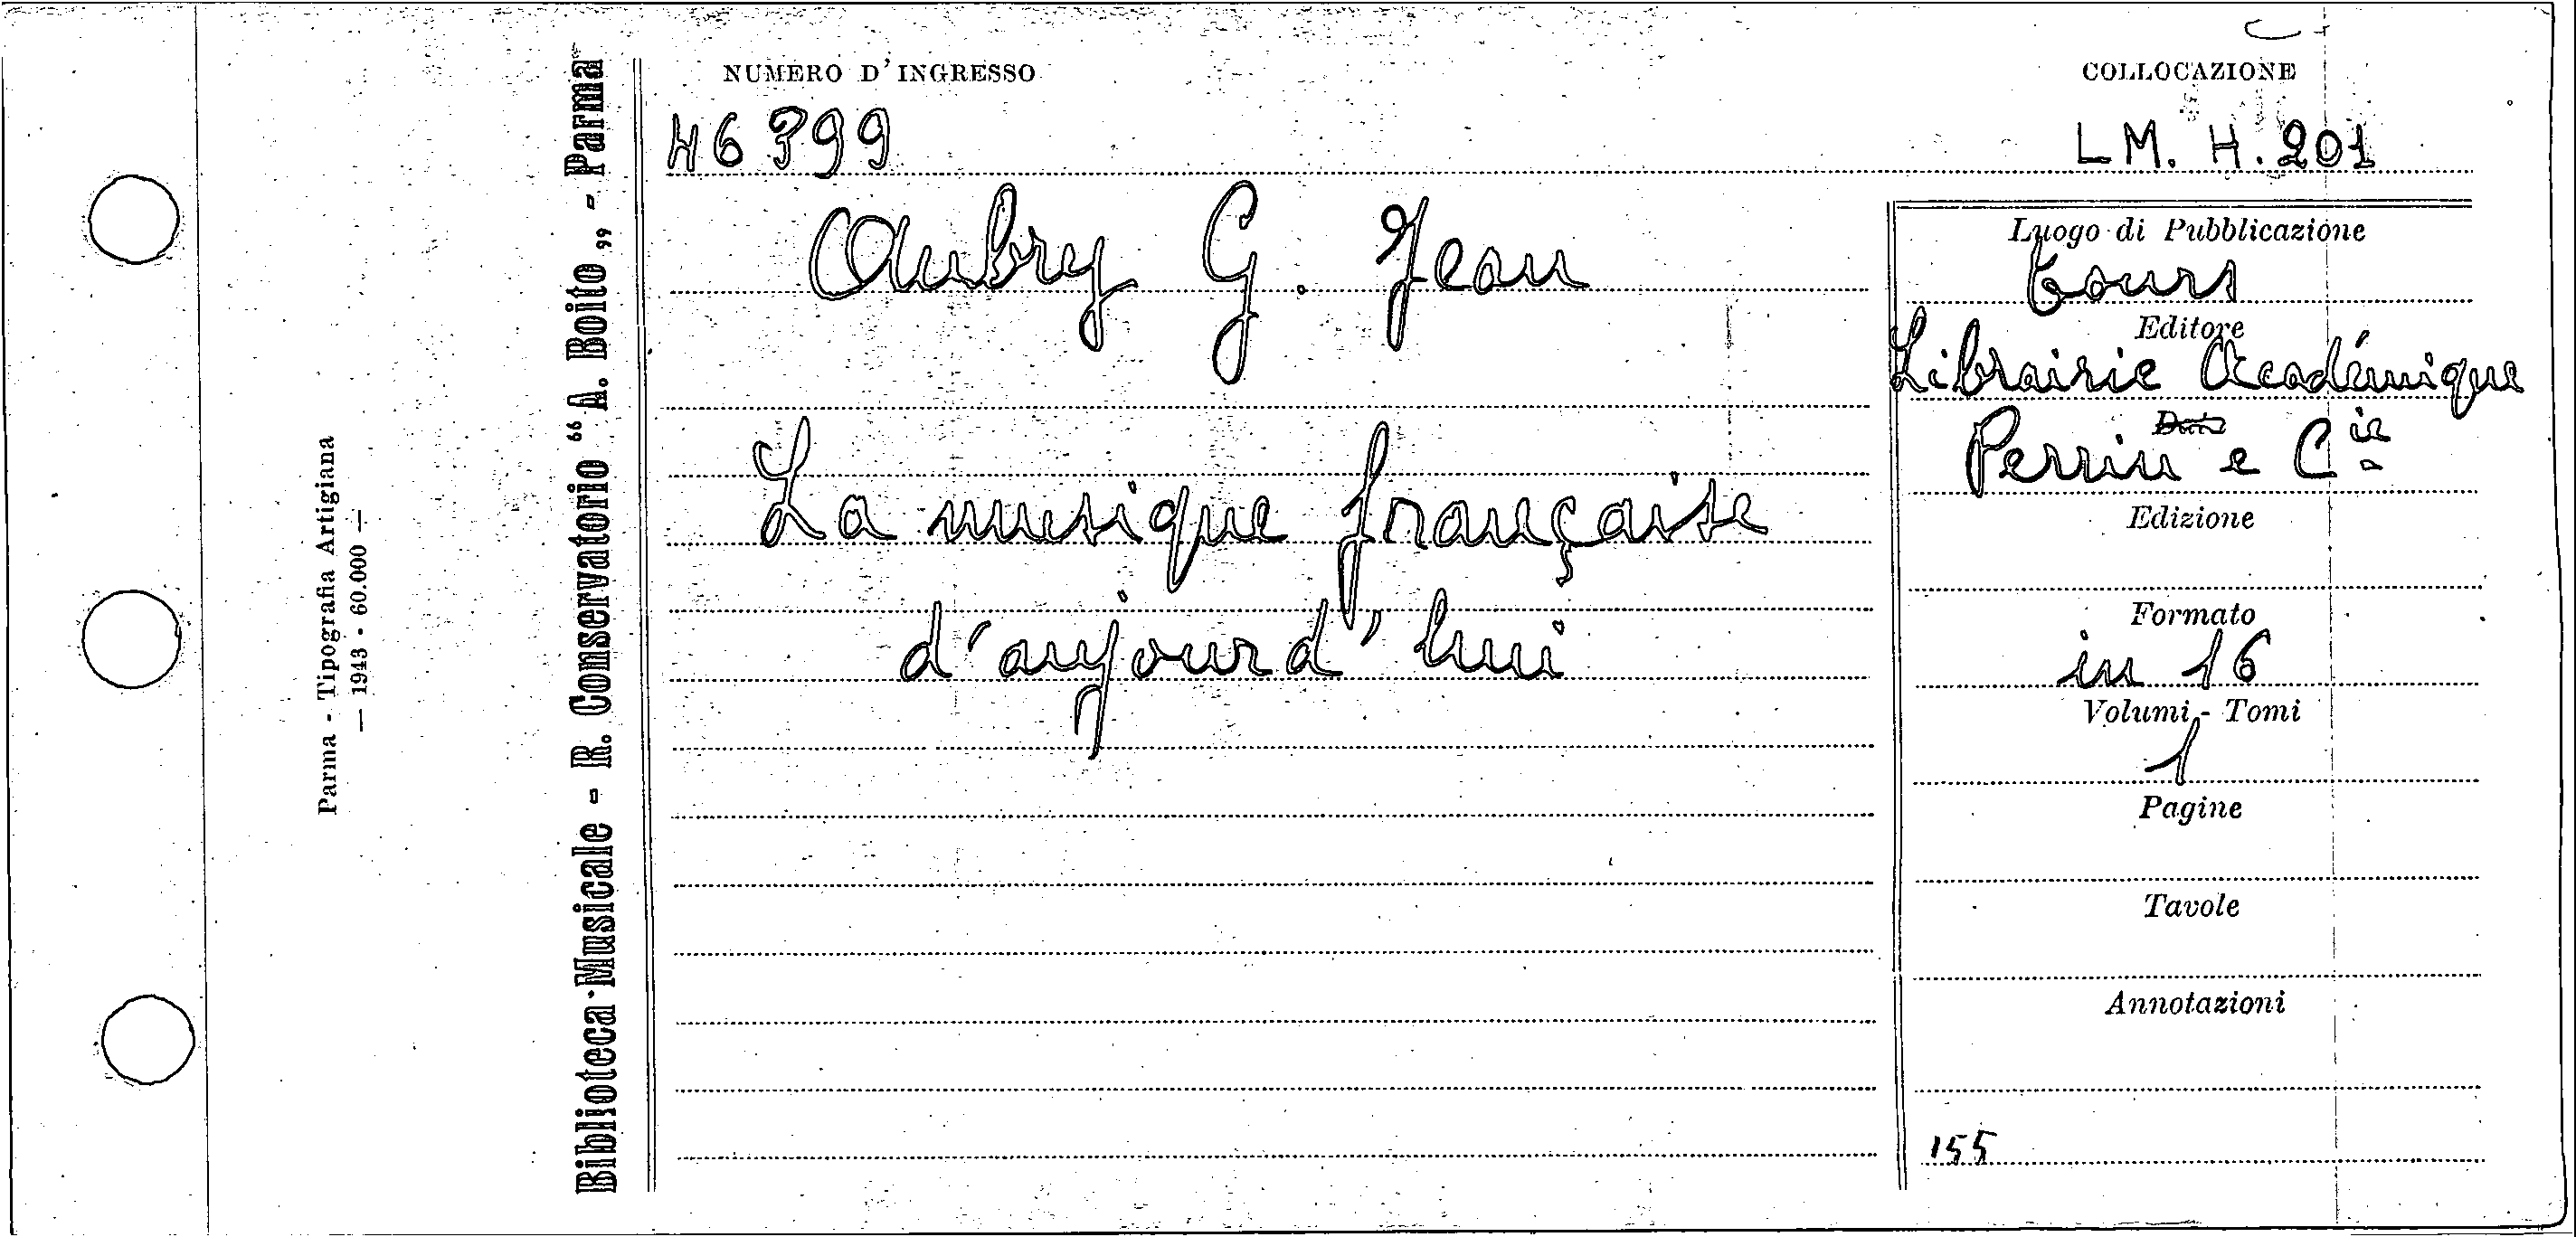 NUMERO D'INGRESSO
46399
COLLOCAZIONE
LM. H. 201
Aubry G. Jean
La musique française
d'aujourd'hui
Luogo di Pubblicazione
Tours
Editore
Librairie Académique
Data
Perrin e Cie
Edizione
Formato
in 16
Volumi - Tomi
1
Pagine
Tavole
Annotazioni
155
Biblioteca Musicale - R. Conservatorio “A. Boito„ - Parma
Parma - Tipografia Artigiana
— 1943 - 60.000 —